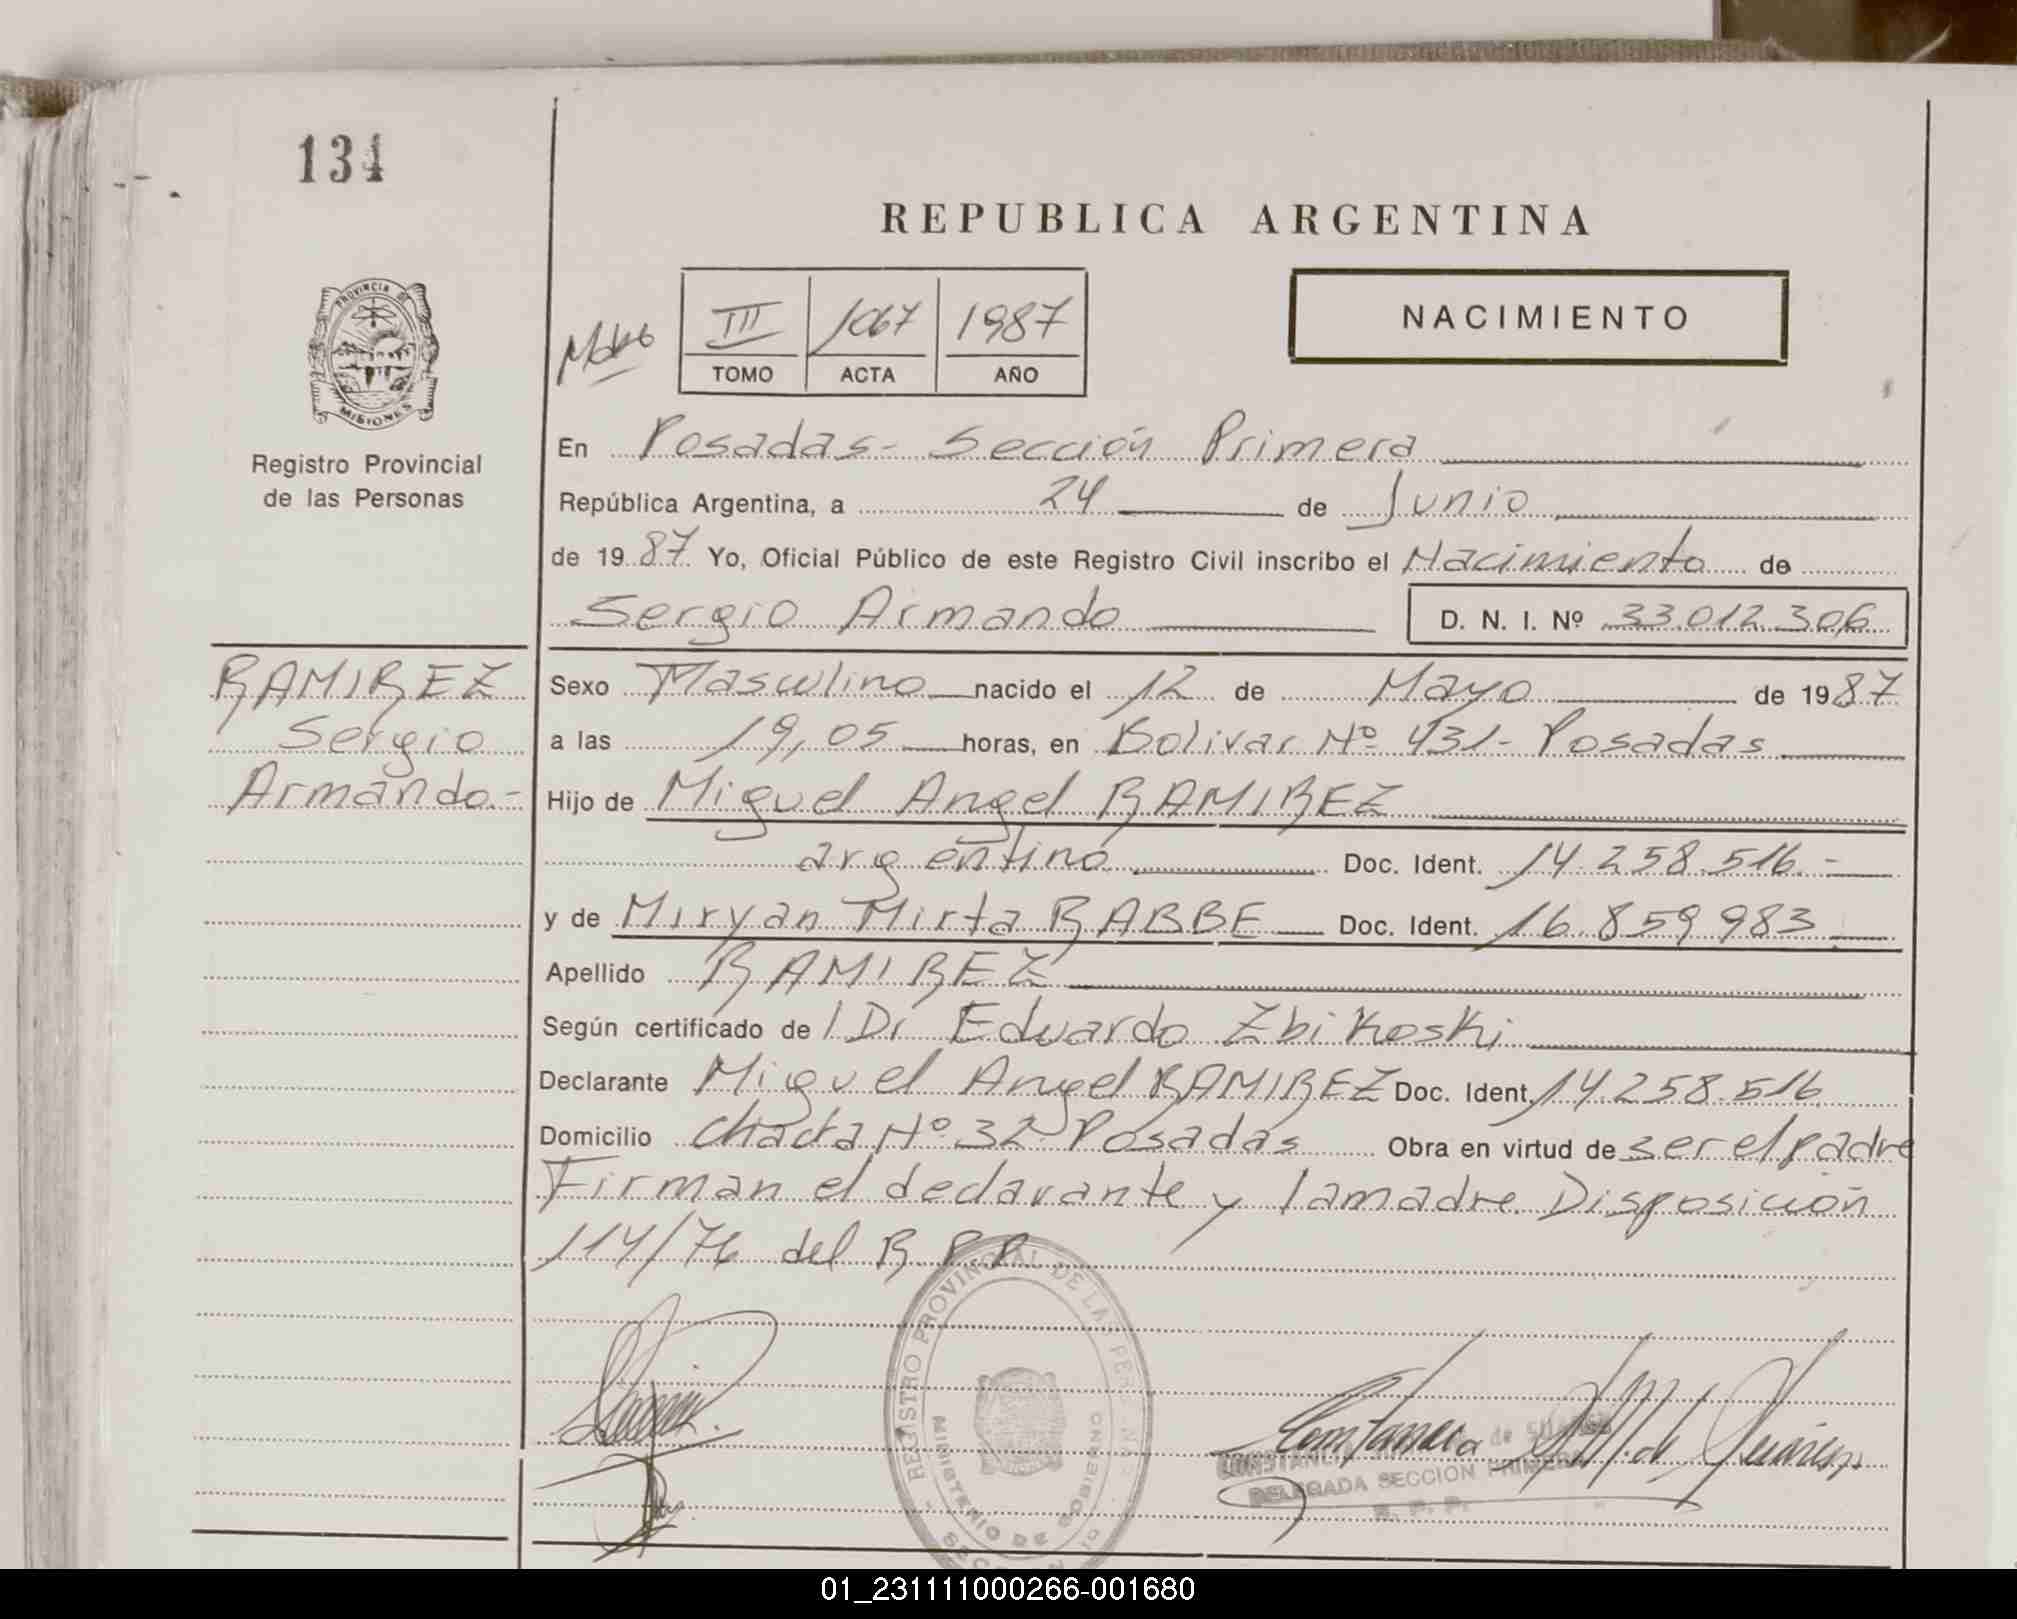 134
REPUBLICA ARGENTINA
PROVINCIA DE
MISIONES
Registro Provincial
de las Personas
III 1067 1987
TOMO ACTA AÑO
NACIMIENTO
En Posadas - Sección Primera
República Argentina, a 24 de Junio
de 1987 Yo, Oficial Público de este Registro Civil inscribo el Nacimiento de
Sergio Armando D. N. I. Nº 33.012.306
RAMIREZ
Sergio
Armando.-
Sexo Masculino nacido el 12 de Mayo de 1987
a las 19,05 horas, en Bolivar Nº 431 - Posadas
Hijo de Miguel Angel RAMIREZ
argentino Doc. Ident. 14.258.516.-
y de Miryan Mirta RABBE Doc. Ident. 16.859.983
Apellido RAMIREZ
Según certificado de Dr Eduardo Zbikoski
Declarante Miguel Angel RAMIREZ Doc. Ident. 14.258.516
Domicilio Chacra Nº 32 Posadas Obra en virtud de ser el padre
Firman el declarante y la madre. Disposición
114/76 del R.P.P.
REGISTRO PROVINCIAL DE LAS PERSONAS
MINISTERIO DE GOBIERNO
CONSTANCIA de SUAREZ
DELEGADA SECCION PRIMERA
R. P. P.
01_231111000266-001680